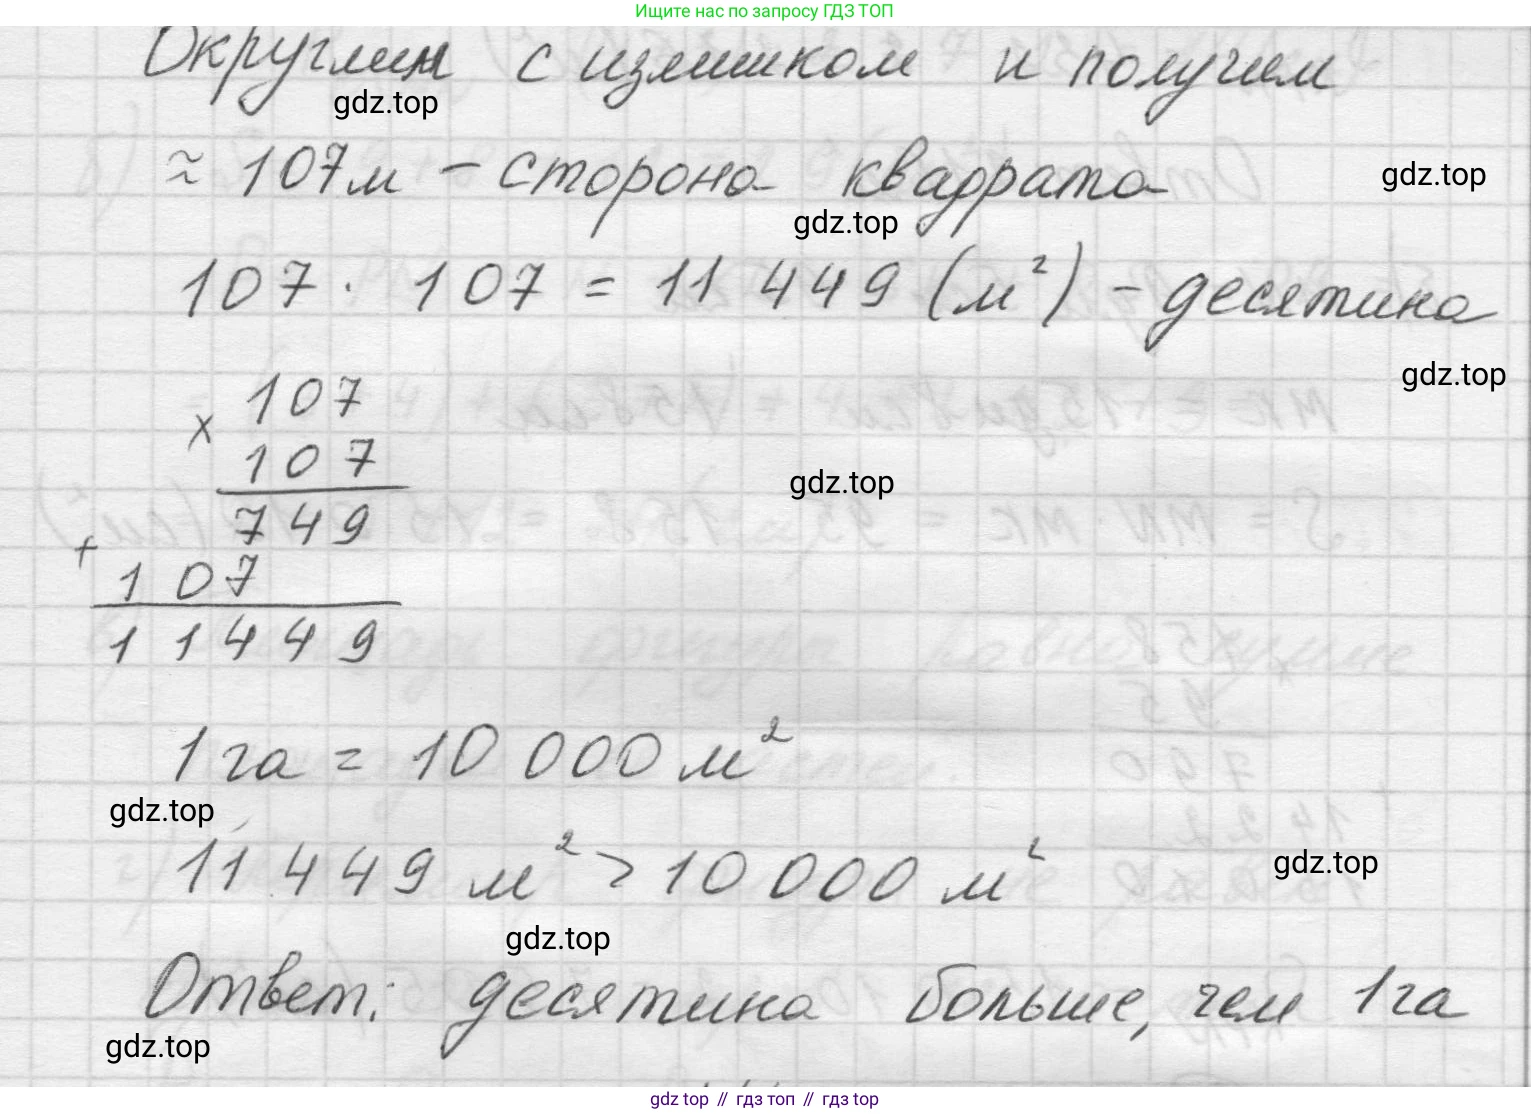 Ищите нас по запросу ГДЗ ТОП
Округлим с излишком и получим
gdz.top
≈ 107м – сторона квадрата
gdz.top
gdz.top
107 · 107 = 11 449 (м²) – десятина
gdz.top
107
×
107
gdz.top
749
+
107
11449
1 га = 10 000 м²
gdz.top
11 449 м² > 10 000 м²
gdz.top
gdz.top
Ответ: десятина больше, чем 1 га
gdz.top
gdz топ // гдз топ // гдз top